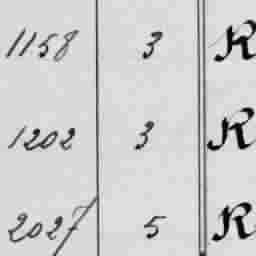 1158 3 R
1202 3 R
2027 5 R